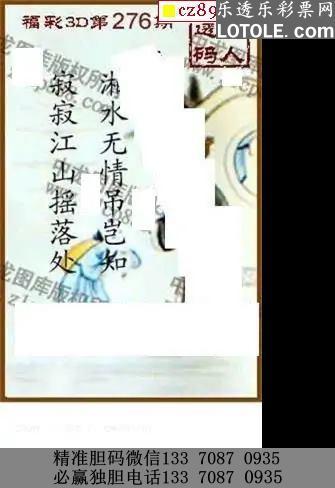 福彩3D第276期
cz89
乐透乐彩票网
LOTOLE.COM
透
码人
湘水无情吊岂知
寂寂江山摇落处
精准胆码微信133 7087 0935
必赢独胆电话133 7087 0935